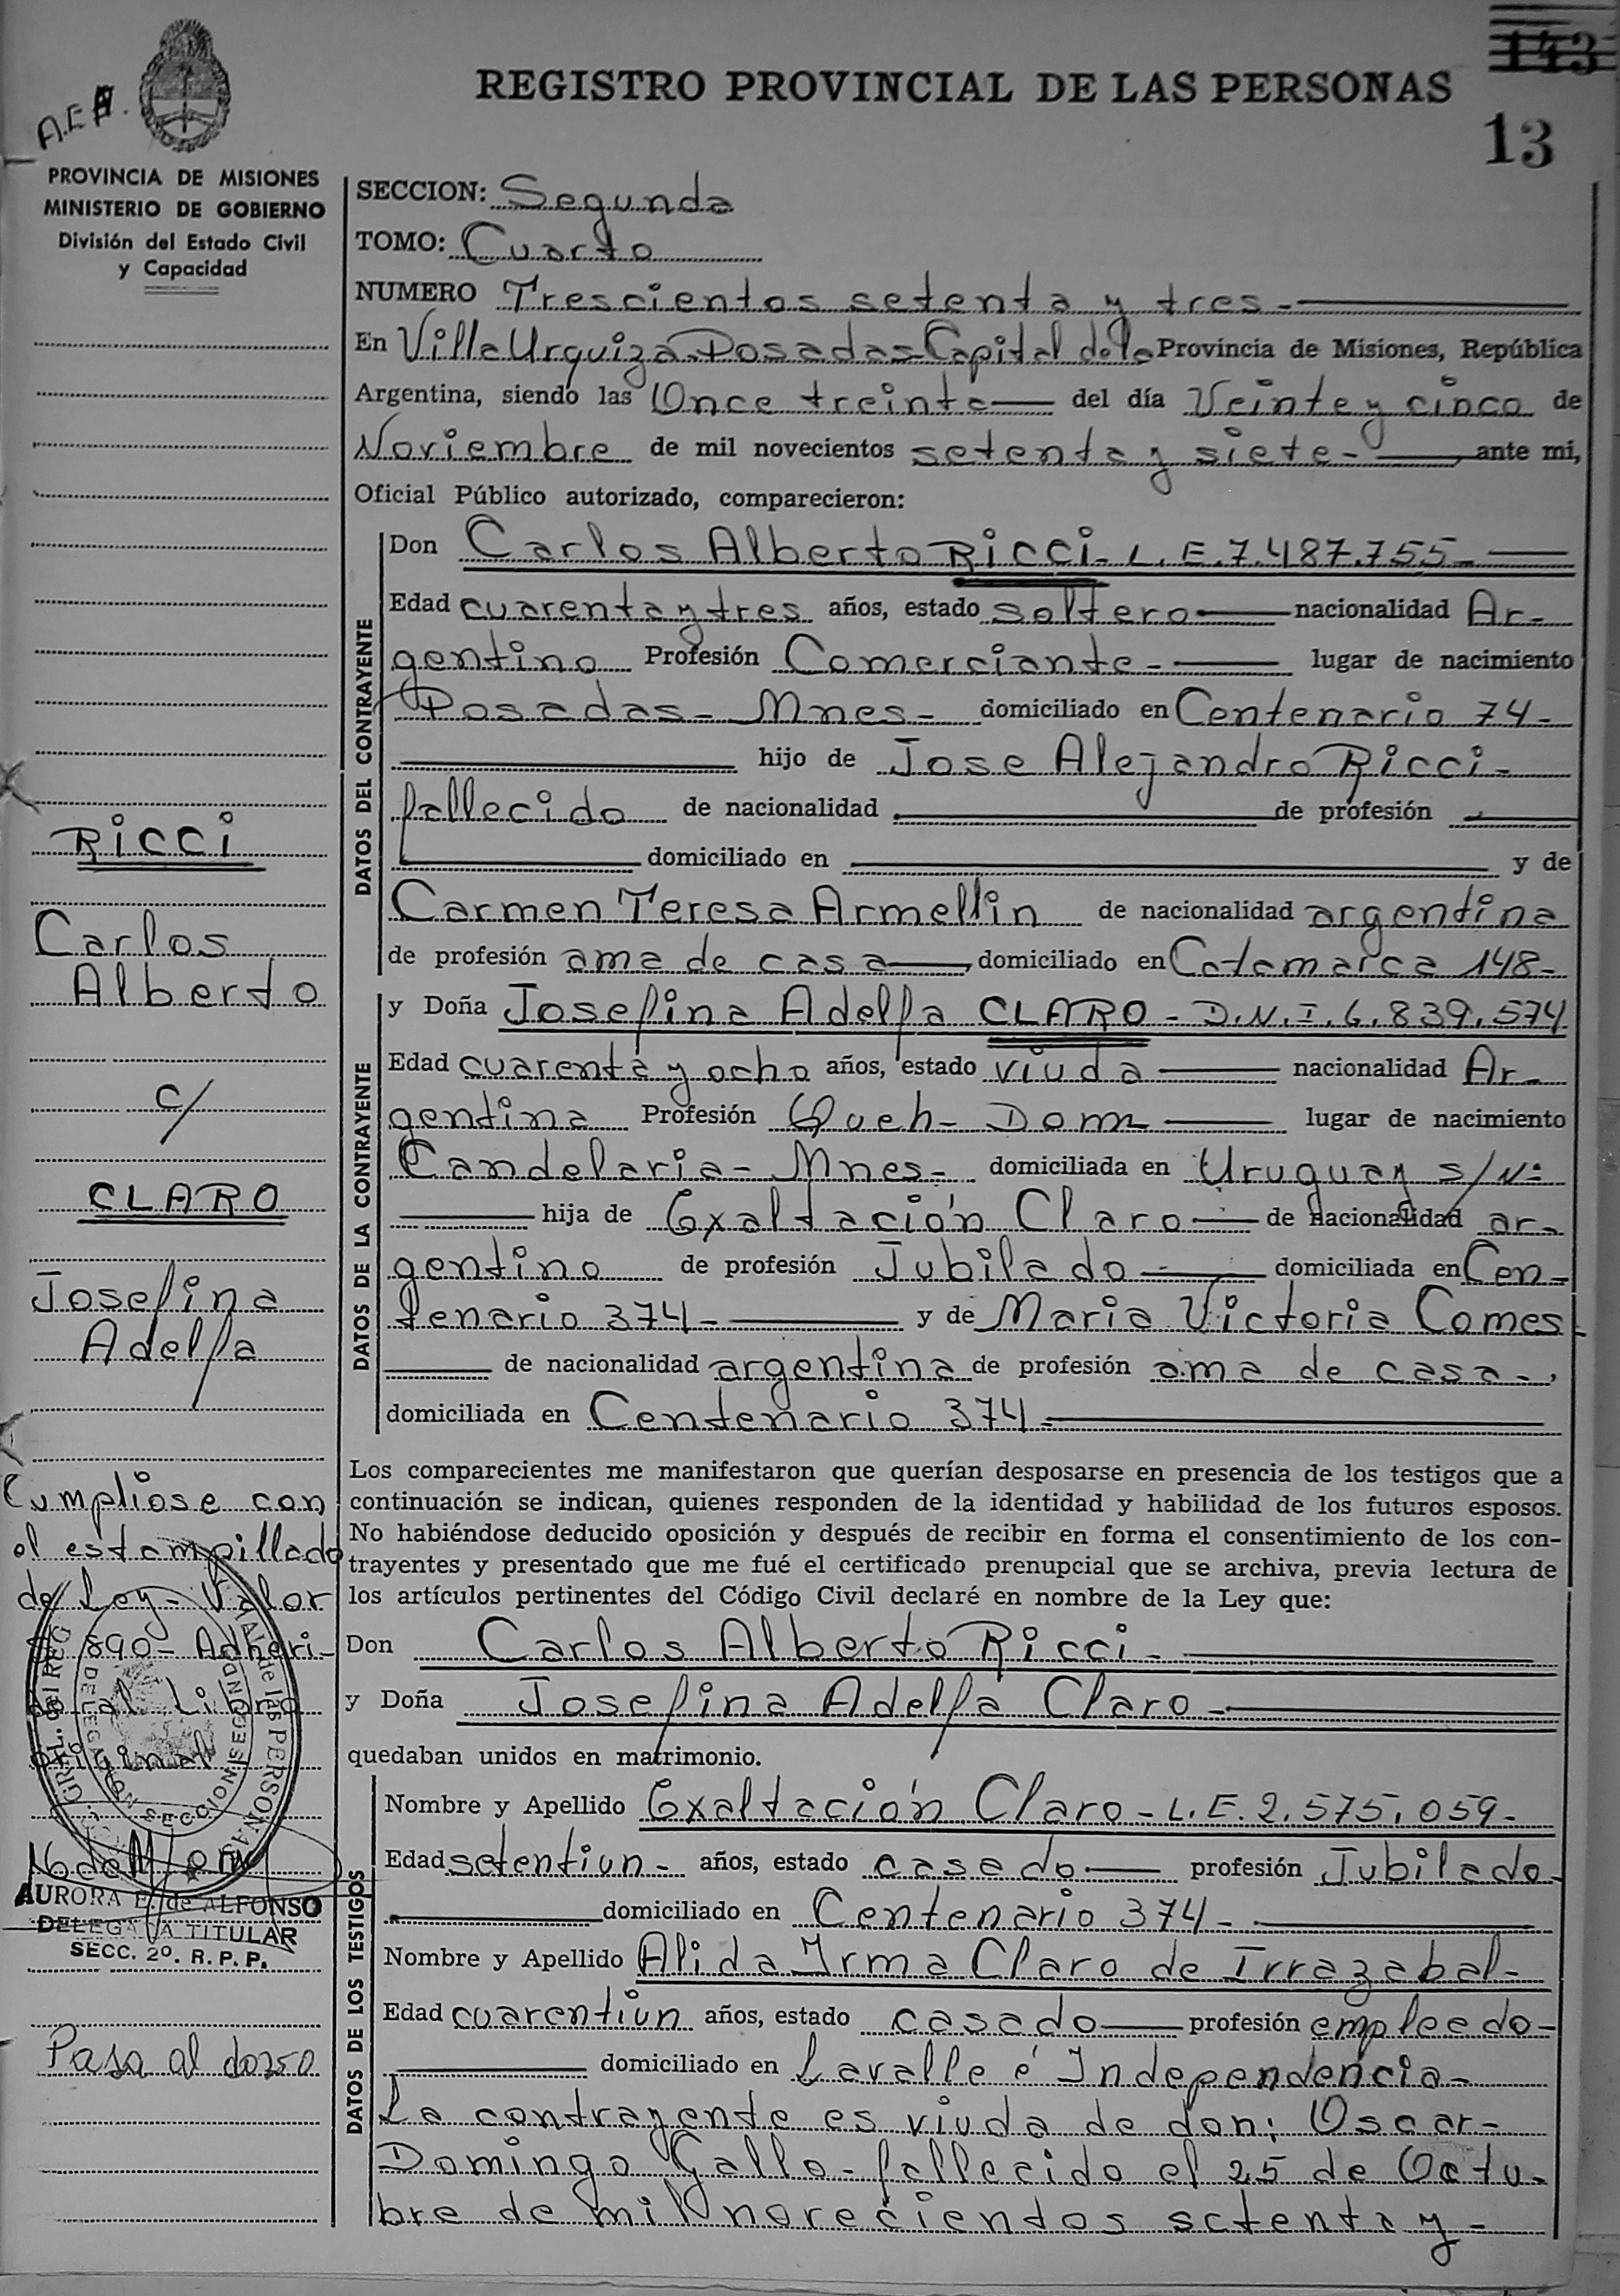 143
REGISTRO PROVINCIAL DE LAS PERSONAS
13
A.E.A.
PROVINCIA DE MISIONES
MINISTERIO DE GOBIERNO
División del Estado Civil
y Capacidad
SECCION: Segunda
TOMO: Cuarto
NUMERO Trescientos setenta y tres-
En Villa Urquiza-Posadas-Capital de la Provincia de Misiones, República
Argentina, siendo las Once treinta del día Veinte y cinco de
Noviembre de mil novecientos setenta y siete- ante mi,
Oficial Público autorizado, comparecieron:
DATOS DEL CONTRAYENTE
Don Carlos Alberto RiCCi- L.E.7.487.755-
Edad cuarenta y tres años, estado soltero nacionalidad Ar-
gentino Profesión Comerciante- lugar de nacimiento
Posadas- Mnes- domiciliado en Centenario 74-
hijo de Jose Alejandro Ricci-
fallecido de nacionalidad de profesión
domiciliado en y de
Carmen Teresa Armellin de nacionalidad argentina
de profesión ama de casa domiciliado en Catamarca 148-
DATOS DE LA CONTRAYENTE
y Doña Josefina Adelfa CLARO- D.N.I. 6.839.574
Edad cuarenta y ocho años, estado viuda nacionalidad Ar-
gentina Profesión Queh- Dom lugar de nacimiento
Candelaria- Mnes- domiciliada en Uruguay s/Nº
hija de Exaltación Claro de nacionalidad ar-
gentino de profesión Jubilado domiciliada en Cen-
tenario 374- y de Maria Victoria Comes
de nacionalidad argentina de profesión ama de casa-,
domiciliada en Centenario 374-
Los comparecientes me manifestaron que querían desposarse en presencia de los testigos que a
continuación se indican, quienes responden de la identidad y habilidad de los futuros esposos.
No habiéndose deducido oposición y después de recibir en forma el consentimiento de los con-
trayentes y presentado que me fué el certificado prenupcial que se archiva, previa lectura de
los artículos pertinentes del Código Civil declaré en nombre de la Ley que:
Don Carlos Alberto Ricci-
y Doña Josefina Adelfa Claro-
quedaban unidos en matrimonio.
DATOS DE LOS TESTIGOS
Nombre y Apellido Exaltación Claro- L.E. 2.575.059-
Edad setentiun- años, estado casado profesión Jubilado-
domiciliado en Centenario 374-
Nombre y Apellido Alida Irma Claro de Irrazabal-
Edad cuarentiun años, estado casado profesión empleado-
domiciliado en Lavalle é Independencia-
La contrayente es viuda de don: Oscar-
Domingo Gallo- fallecido el 25 de Octu-
bre de mil novecientos setenta y-
RiCCi
Carlos
Alberto
c/
CLARO
Josefina
Adelfa
Cumpliose con
el estampillado
de Ley- Valor
890- Adheri-
al Libro
original
GRAL. del REG. PROVINCIAL de las PERSONAS
DELEGACION SECCION SEGUNDA
AURORA E. de ALFONSO
DELEGADA TITULAR
SECC. 2º. R. P. P.
Pasa al dorso